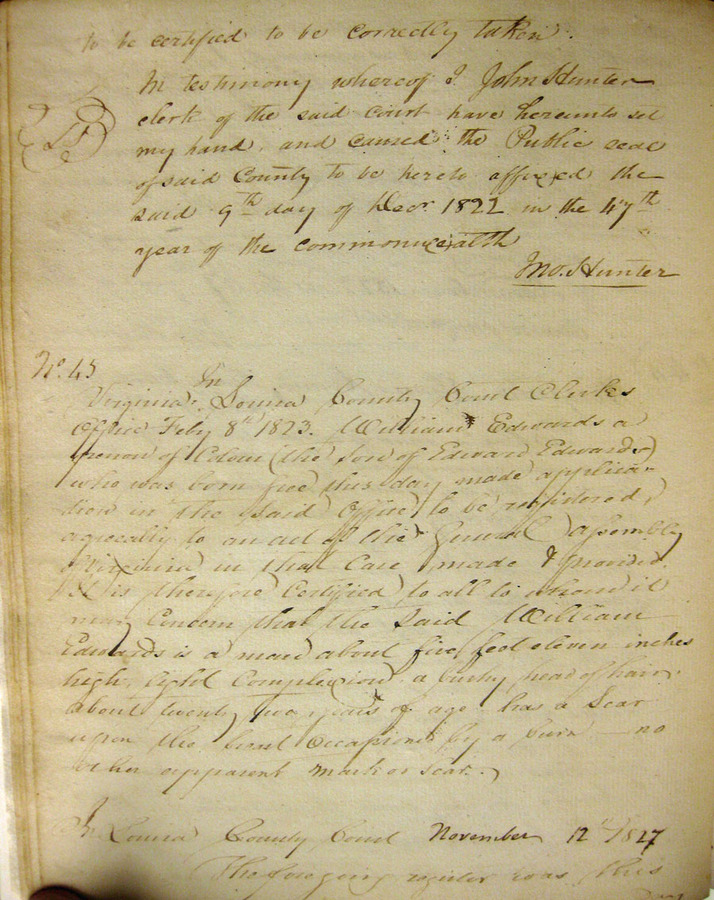 to be certified to be correctly taken.
In testimony whereof I John Hunter
clerk of the said court have hereunto set
my hand, and caused the Public seal
of said County to be hereto affixed the
said 9th day of Decr 1822 in the 47th
year of the commonwealth
Jno. Hunter
No. 45
In
Virginia, Louisa County Court Clerks
Office Feby 8th 1823. William Edwards a
person of Colour (the son of Edward Edwards)
who was born free this day made applica-
tion in the said Office to be registered,
agreeally to an act of the General assembly
of Virginia in that Case made & provided.
It is therefore Certified to all to whom it
may Concern that the said William
Edwards is a man about five feet eleven inches
high, light Complexion a bushy head of hair,
about twenty two years of age has a Scar
upon the breast Occasioned by a burn — no
other apparent mark or scar.
In Louisa County Court November 12th 1827
The foregoing register was this
Day